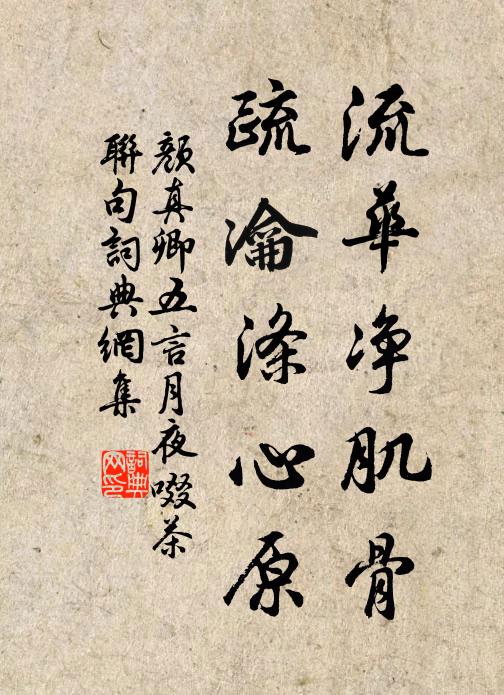 流華净肌骨
疏瀹涤心原
顏真卿五言月夜啜茶
聯句詞典網集
詞典网印